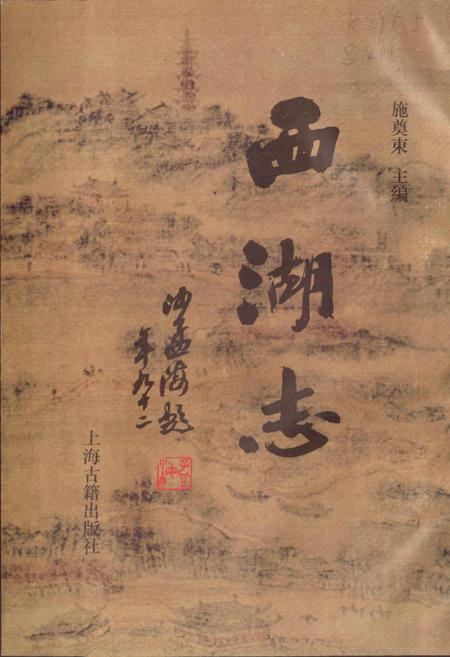 K295.5
施奠東 主編
西湖志
沙孟海題
年九十二
上海古籍出版社